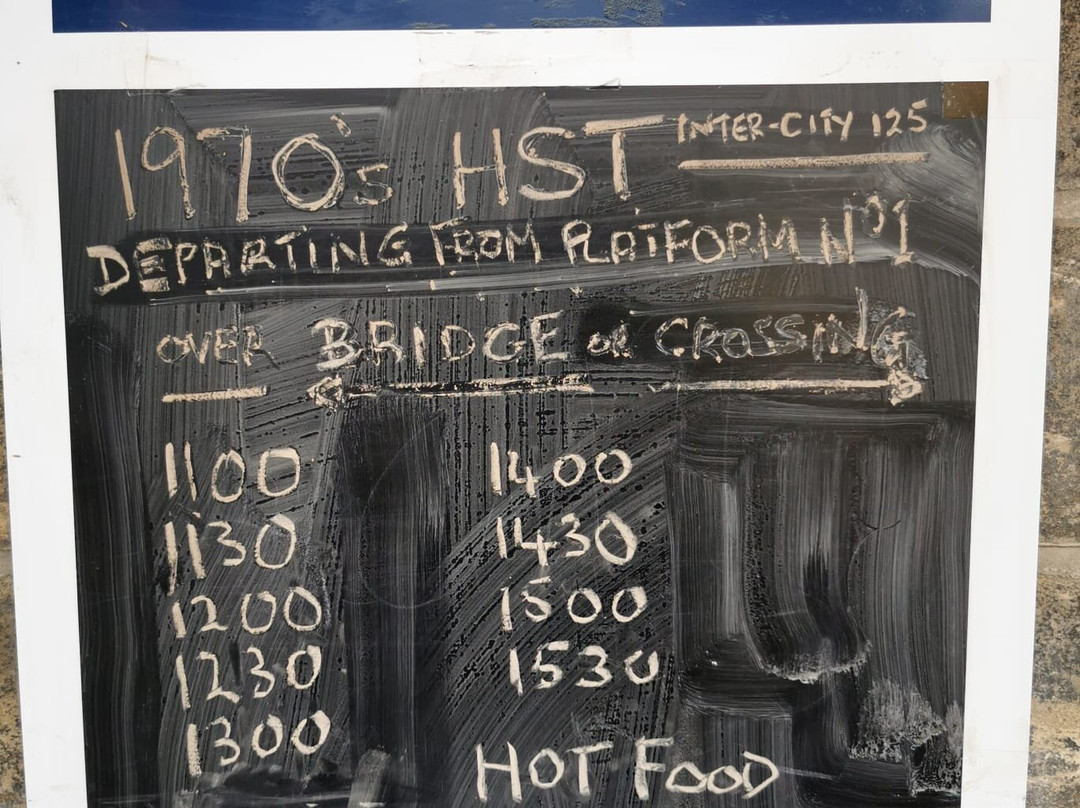 1970's HST INTER-CITY 125
DEPARTING FROM PLATFORM Nº1
OVER BRIDGE OR CROSSING
1100 1400
1130 1430
1200 1500
1230 1530
1300
HOT FOOD